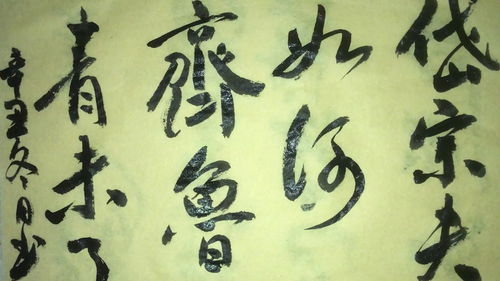 岱宗夫
如何
齊魯
青未了
辛丑冬日书